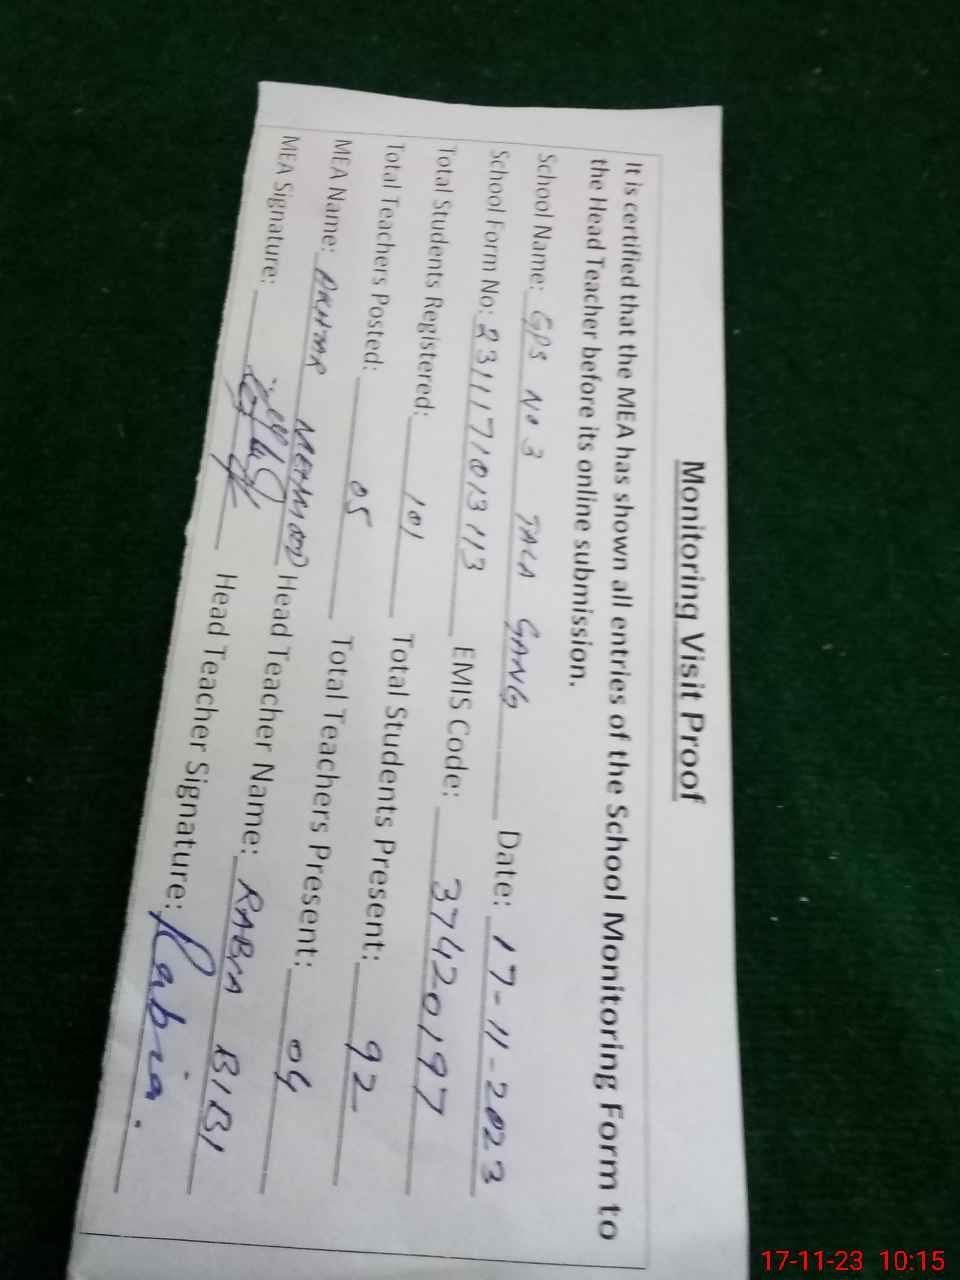 Monitoring Visit Proof
It is certified that the MEA has shown all entries of the School Monitoring Form to
the Head Teacher before its online submission.
School Name: GPS No 3 TALA GANG Date: 17-11-2023
School Form No: 2311171013113 EMIS Code: 37420197
Total Students Registered: 101 Total Students Present: 92
Total Teachers Posted: 05 Total Teachers Present: 04
MEA Name: AKHTAR MEHMOOD Head Teacher Name: RABIA BIBI
MEA Signature: Head Teacher Signature: Rabia.
17-11-23 10:15